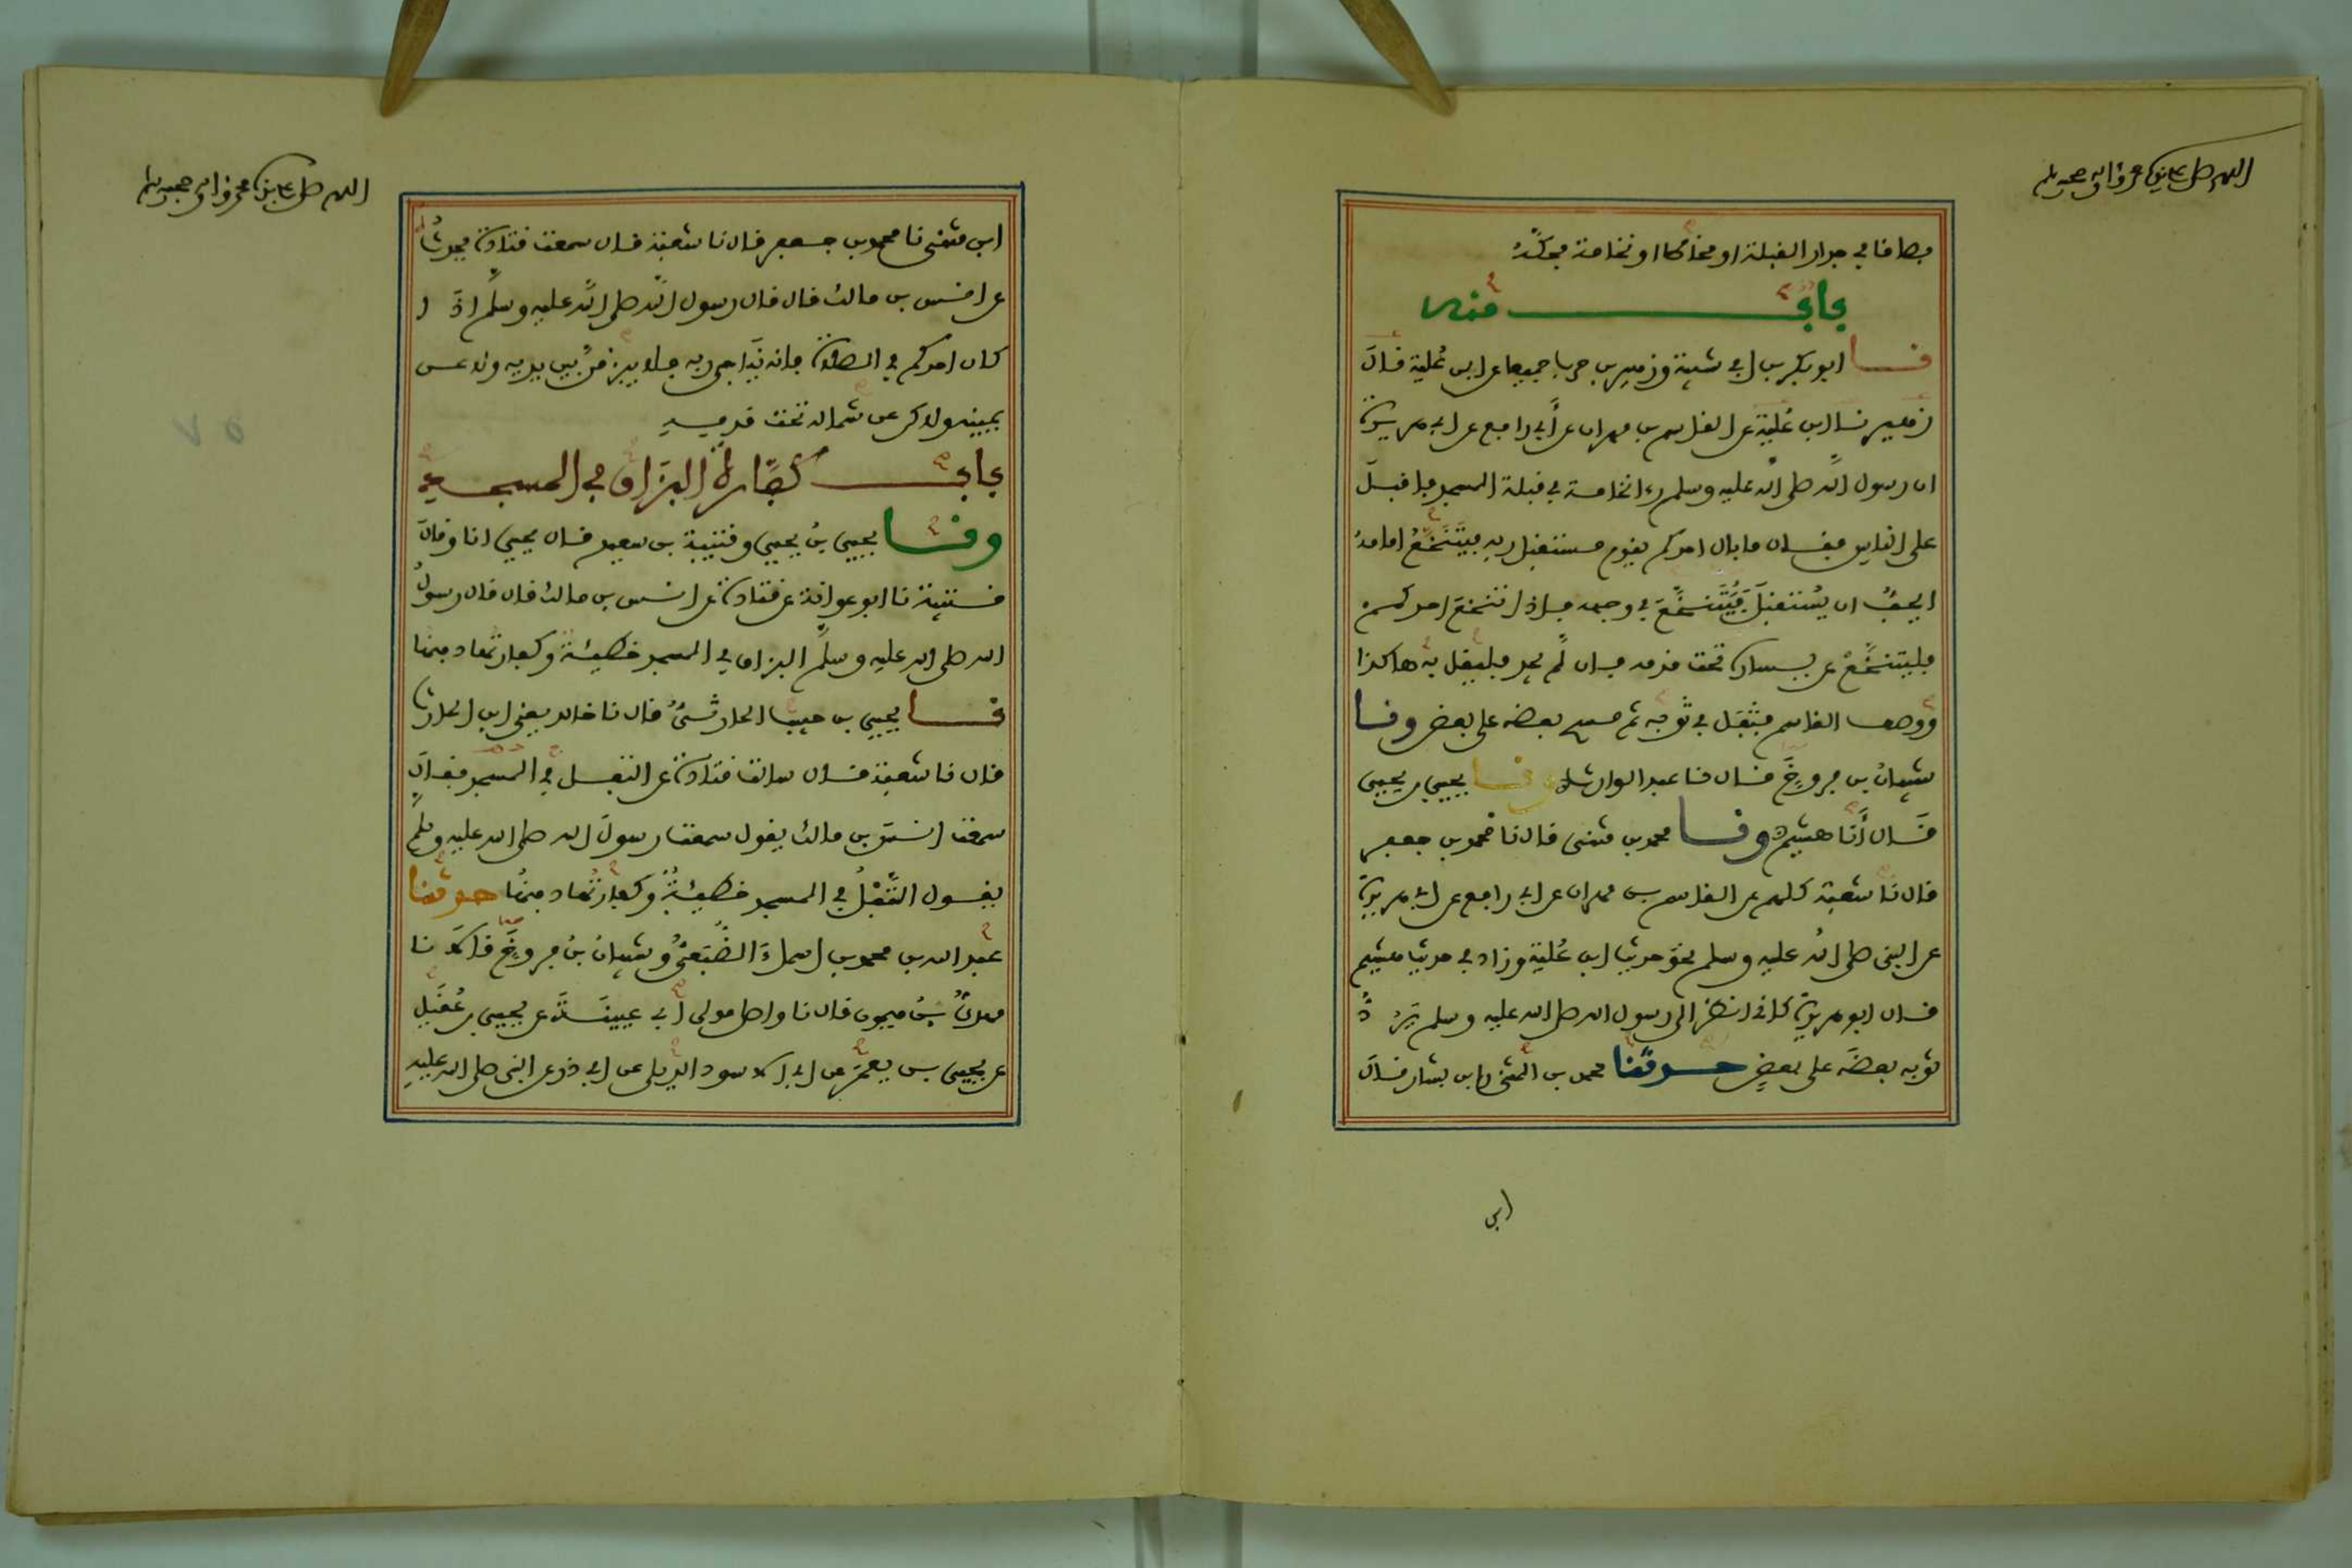 اللهم صل على سيدنا محمد وءاله وصحبه وسلم
بصافا في جدار القبلة او مخاطا او نخامة فحكه
باب منه
نا ابو بكر بن ابي شيبة وزهير بن حرب جميعا عن ابن علية قال
زهير نا ابن علية عن القاسم بن مهران عن أبي رافع عن ابي هريرة
ان رسول الله صلى الله عليه وسلم رءا نخامة في قبلة المسجد فاقبل
على الناس فقال ما بال احدكم يقوم مستقبل ربه فيتنخع امامه
ايحب ان يستقبل فيتنخع في وجهه فاذا تنخع احدكم
فليتنخع عن يساره تحت قدمه فان لم يجد فليقل به هاكذا
ووصف القاسم فتفل في ثوبه ثم مسح بعضه على بعض ونا
شيبان بن فروخ قال نا عبد الوارث ونا يحيى بن يحيى
قال أنا هشيم ونا محمد بن مثنى قال نا محمد بن جعفر
قال نا شعبة كلهم عن القاسم بن مهران عن ابي رافع عن ابي هريرة
عن النبي صلى الله عليه وسلم نحو حديث ابن علية وزاد في حديث هشيم
قال ابو هريرة كاني انظر الى رسول الله صلى الله عليه وسلم يرد
ثوبه بعضه على بعض حدثنا محمد بن المثنى وابن بشار قال
ابن
اللهم صل على سيدنا محمد وءاله وصحبه وسلم
ابن مثنى نا محمد بن جعفر قال نا شعبة قال سمعت قتادة يحدث
عن انس بن مالك قال قال رسول الله صلى الله عليه وسلم اذا
كان احدكم في الصلاة فانه يناجي ربه فلا يبزقن بين يديه ولا عن
يمينه ولاكن عن شماله تحت قدميه
باب كفارة البزاق في المسجد
ونا يحيى بن يحيى وقتيبة بن سعيد قال يحيى انا وقال
قتيبة نا ابو عوانة عن قتادة عن انس بن مالك قال قال رسول
الله صلى الله عليه وسلم البزاق في المسجد خطيئة وكفارتها دفنها
نا يحيى بن حبيب الحارثي قال نا خالد يعني ابن الحارث
قال نا شعبة قال سالت قتادة عن التفل في المسجد فقال
سمعت انس بن مالك يقول سمعت رسول الله صلى الله عليه وسلم
يقول التفل في المسجد خطيئة وكفارتها دفنها حدثنا
عبد الله بن محمد بن اسماء الضبعي وشيبان بن فروخ قالا نا
مهدي بن ميمون قال نا واصل مولى أبي عيينة عن يحيى بن عقيل
عن يحيى بن يعمر عن ابي الاسود الديلي عن ابي ذر عن النبي صلى الله عليه
٧٥